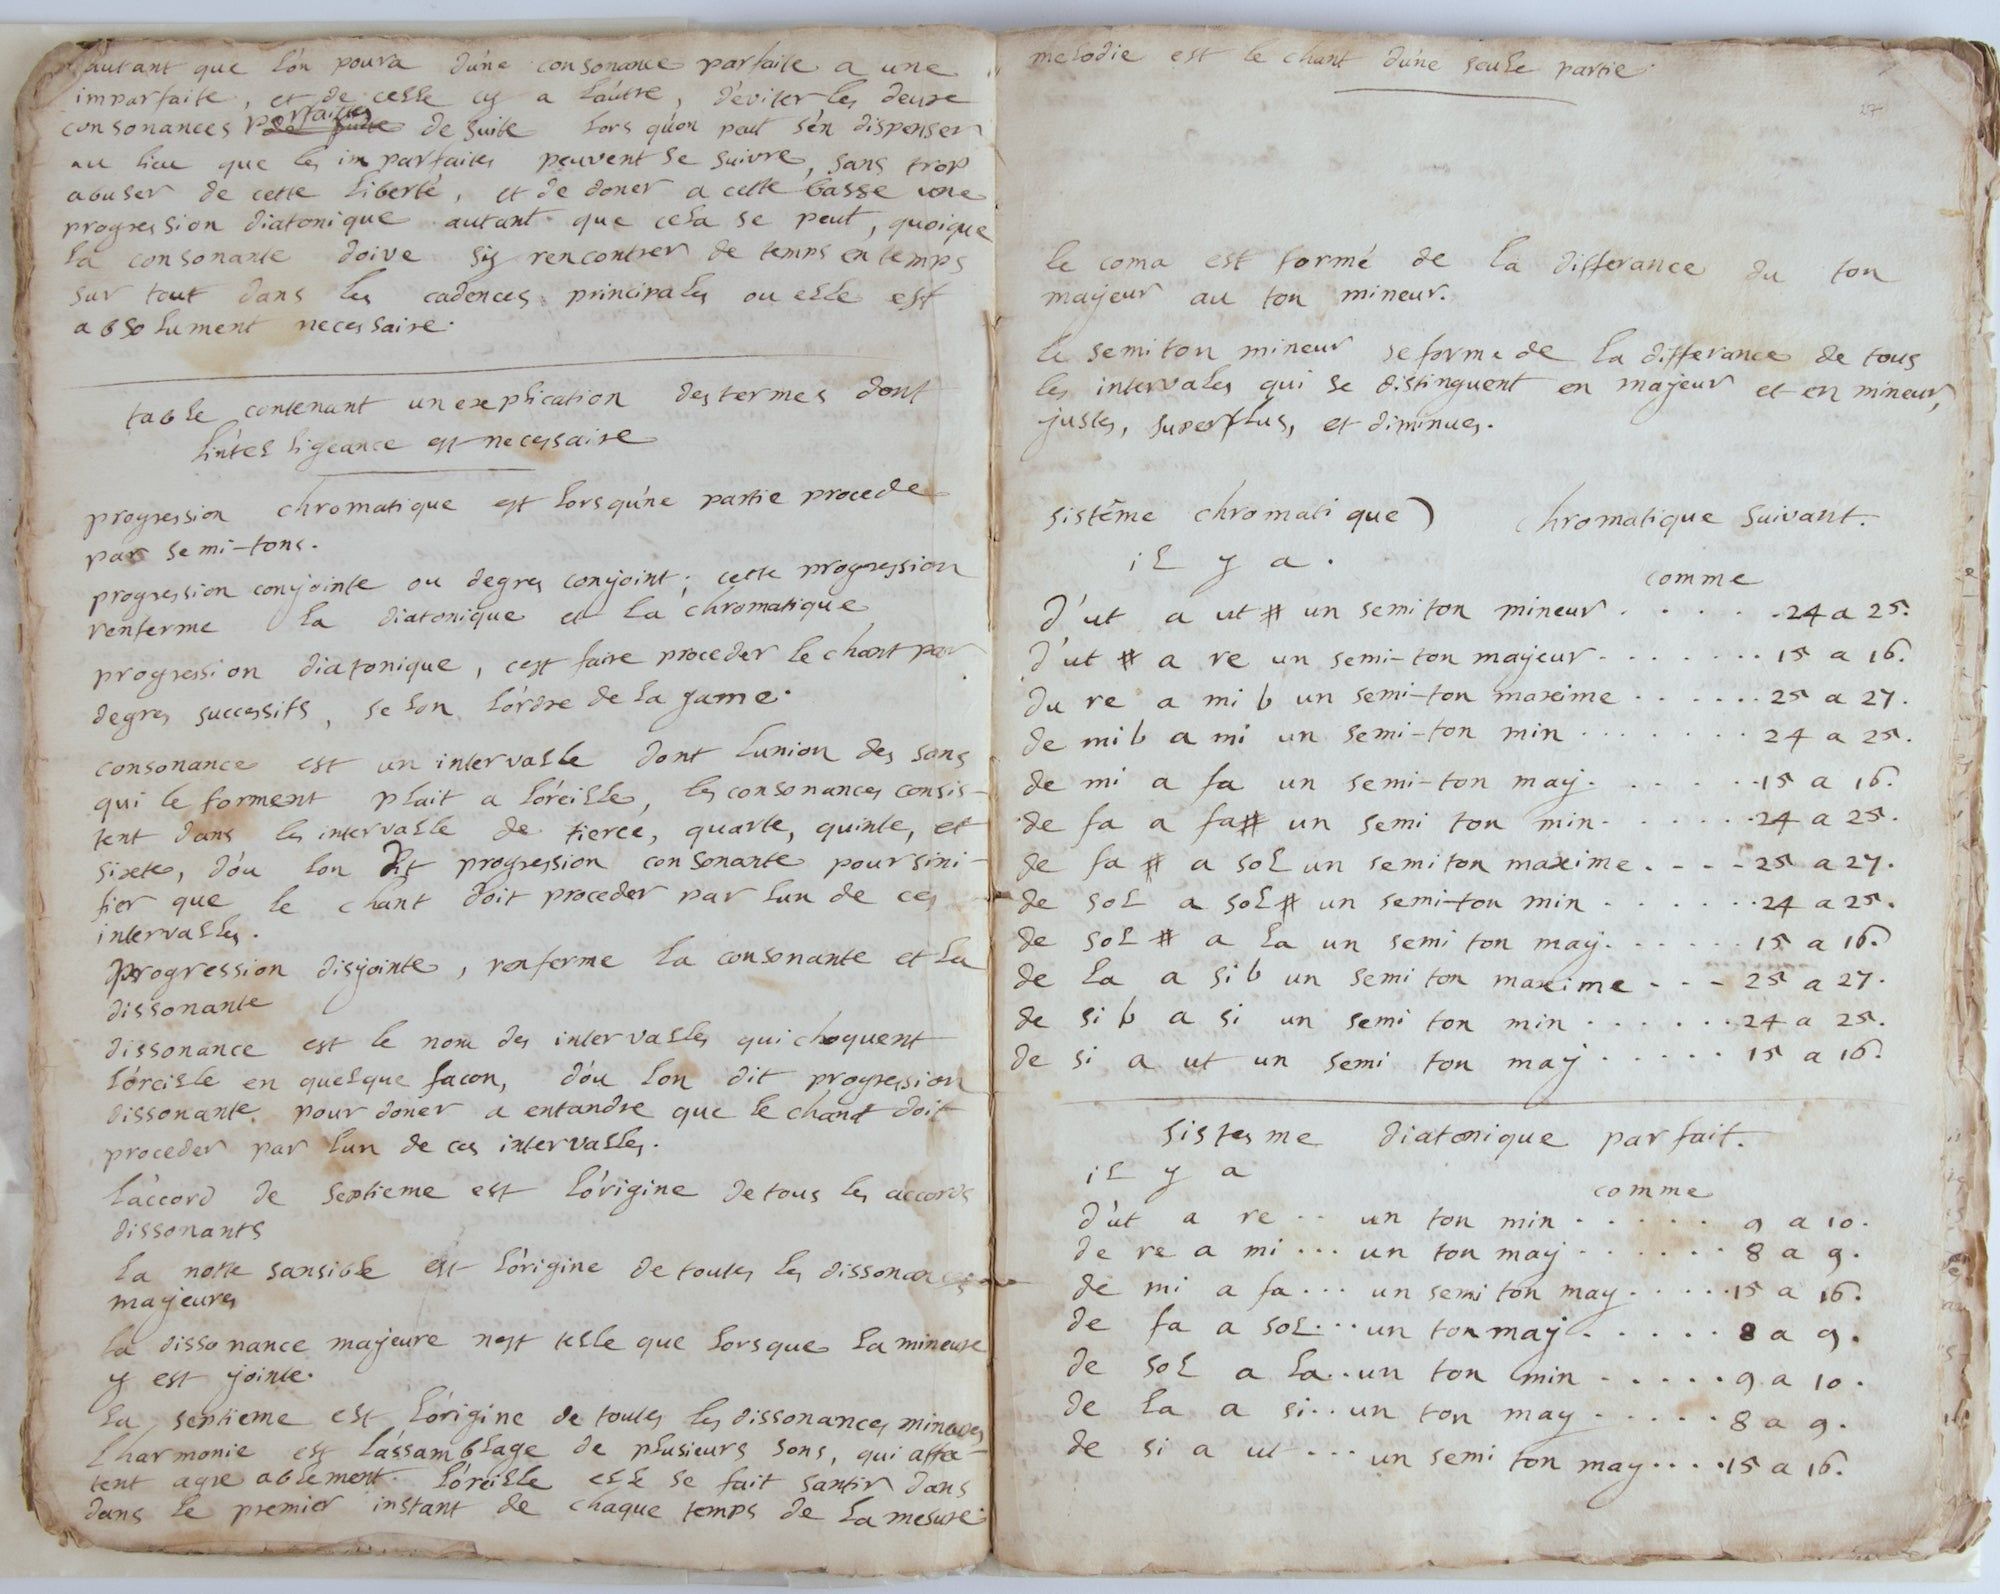 d'autant que l'on poura d'une consonance parfaite a une
imparfaite, et de celle cy a l'autre, d'eviter les deuxe
consonances parfaites de suite lors qu'on peut s'en dispenser
au lieu que les imparfaites peuvent se suivre, sans trop
abuser de cette liberté, et de doner a cette basse une
progression diatonique autant que cela se peut, quoique
la consonante doive s'y rencontrer de temps en temps
sur tout dans les cadences principales ou elle est
absolument necessaire.
table contenant un explication des termes dont
l'intelligeance est necessaire
progression chromatique est lorsqu'ne partie procede
par semi-tons.
progression conjointe ou degres conjoint; cette progression
renferme la diatonique et la chromatique
progression diatonique, c'est faire proceder le chant par
degres successifs, selon l'ordre de la game.
consonance est un intervalle dont l'union des sons
qui le forment plait a l'oreille, les consonances consis-
tent dans les intervalle de tierce, quarte, quinte, et
sixte, d'ou lon dit progression consonante pour sini-
fier que le chant doit proceder par lun de ces
intervalles.
progression disjointe, renferme la consonante et la
dissonante
dissonance est le nom des intervalles qui choquent
l'oreille en quelque facon, d'ou lon dit progression
dissonante pour doner a entandre que le chant doit
proceder par lun de ces intervalles.
l'accord de septieme est l'origine de tous les accords
dissonants
la notte sansible est l'origine de toutes les dissonances
majeures
la dissonance majeure n'est telle que lorsque la mineure
y est jointe.
la septieme est l'origine de toutes les dissonances mineures
l'harmonie est l'assamblage de plusieurs sons, qui affe-
tent agreablement l'oreille elle se fait santir dans
dans le premier instant de chaque temps de la mesure
melodie est le chant d'une seule partie.
27
le coma est formé de la differance du ton
majeur au ton mineur.
le semiton mineur se forme de la differance de tous
les intervales qui se distinguent en majeur et en mineur,
justes, superflus, et diminues.
sistême chromatique) chromatique suivant.
il y a.
comme
d'ut a ut# un semiton mineur . . . . . 24 a 25.
d'ut # a re un semi-ton majeur . . . . . . . 15 a 16.
du re a mi b un semi-ton maxime . . . . . . 25 a 27.
de mi b a mi un semi-ton min . . . . . . . 24 a 25.
de mi a fa un semi-ton maj. . . . . . 15 a 16.
de fa a fa# un semi ton min. . . . . . . 24 a 25.
de fa # a sol un semiton maxime . - - - 25 a 27.
de sol a sol# un semi-ton min . . . . . . . 24 a 25.
de sol # a la un semi ton maj. . . . . . 15 a 16.
de la a si b un semi ton maxime - - - 25 a 27.
de si b a si un semi ton min . . . . . . 24 a 25.
de si a ut un semi ton maj . . . . . 15 a 16.
sistesme diatonique parfait.
il y a
comme
d'ut a re . . un ton min . . . . . 9 a 10.
de re a mi . . . un ton maj . . . . . . 8 a 9.
de mi a fa . . . un semi ton maj . . . . . 15 a 16.
de fa a sol . . . un ton maj . . . . . 8 a 9.
de sol a la . . un ton min . . . . . 9 a 10.
de la a si . . un ton maj . . . . . 8 a 9.
de si a ut . . . un semi ton maj . . . . 15 a 16.